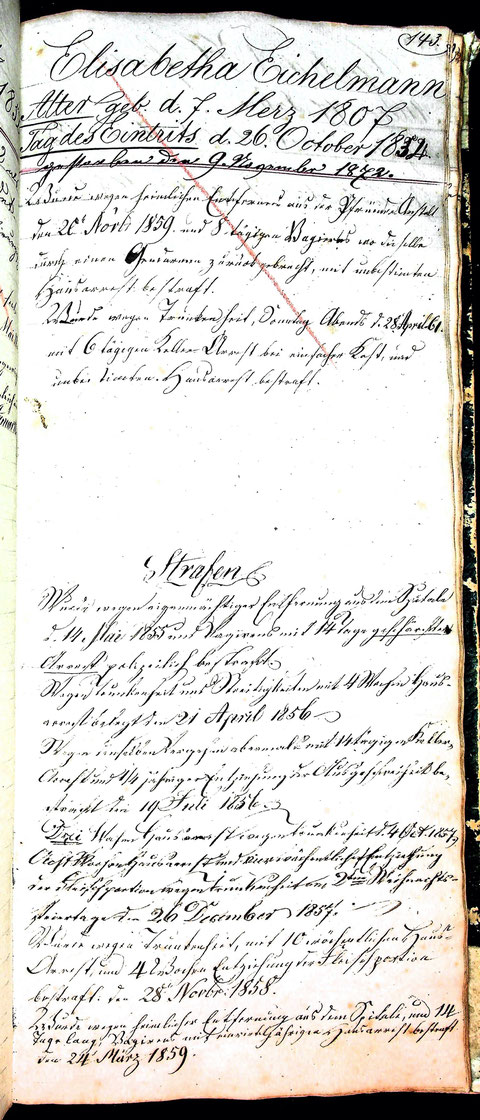 143.
Elisabetha Eichelmann
Alter geb. d. 7. Merz 1807
Tag des Eintrits d. 26. October 1854
gestorben den 9. November 1872.
Wurde wegen heimlichen Entfernens aus der Pfründe Anstalt
den 20t Novbr 1859. und 8 tägigen Vagirens wo dieselbe
durch einen Gendarmen zurückgebracht, mit unbestimten
Hausarrest bestraft.
Wurde wegen Trunkenheit, Sonntag Abends d. 28 April 61.
mit 6 tägigen Keller Arrest bei einfacher Kost, und
unbestimten Hausarrest bestraft.
Strafen
Wurde wegen eigenmächtiger Entfernung aus dem Spitale
d. 14. Mai 1855 und Vagirens mit 14 Tage geschärften
Arrest polizeilich bestraft.
Wegen Trunkenheit und Streitigkeiten mit 4 Wochen Haus-
arrest belegt den 21 April 1856
Wegen desselben Vergehen abermals mit 14 tägigen Keller-
Arrest und 1/4 jähriger Entziehung der Ausgehfreiheit be-
straft den 19 Juli 1856.
Drei Wochen Hausarrest wegen Trunkenheit d. 4 Oct. 1857
Acht Wochen Hausarrest und vierwöchentliche Entziehung
der Fleischportion wegen Trunkenheit am 2ten Weihnachts-
feiertage den 26 December 1857.
Wurde wegen Trunkenheit, mit 10 wöchentlichen Haus-
Arrest, und 4 Wochen Entziehung der Fleischportion
bestraft. den 28t Novbr. 1858.
Wurde wegen heimlicher Entfernung aus dem Spitale, und 14
Tage lang Vagirens mit einvierteljährigen Hausarrest bestraft
den 24 März 1859.